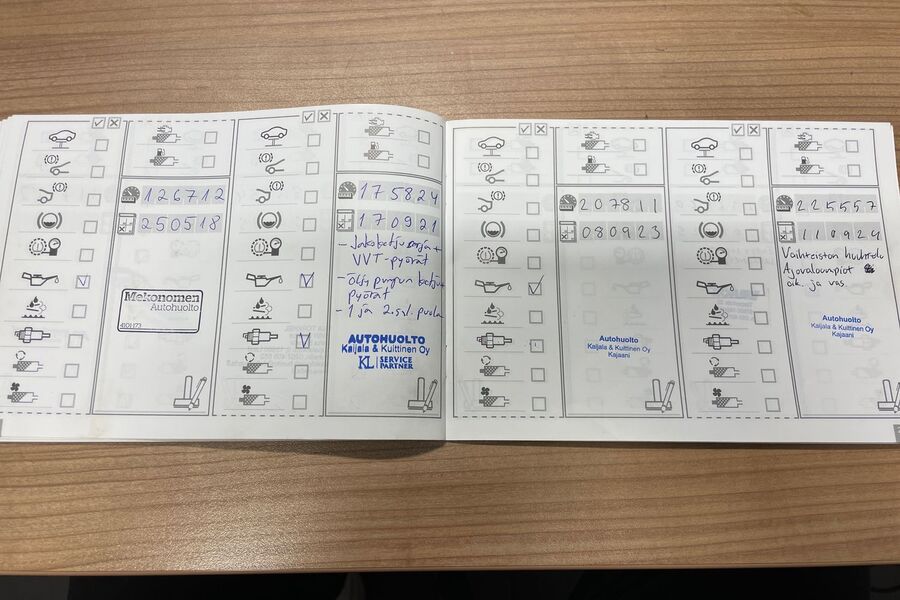 126712
250518
Mekonomen
Autohuolto
175824
170921
- Jakoketju sarja +
VVT-pyörät
- Öljypumpun ketju
pyörät
- 1 ja 2 syl. puola
AUTOHUOLTO
Kaijala & Kuittinen Oy
KL SERVICE
PARTNER
207811
080923
Autohuolto
Kaijala & Kuittinen Oy
Kajaani
225557
110924
Vaihteiston huuhtelu
Ajovaloumpiot
oik. ja vas.
Autohuolto
Kaijala & Kuittinen Oy
Kajaani